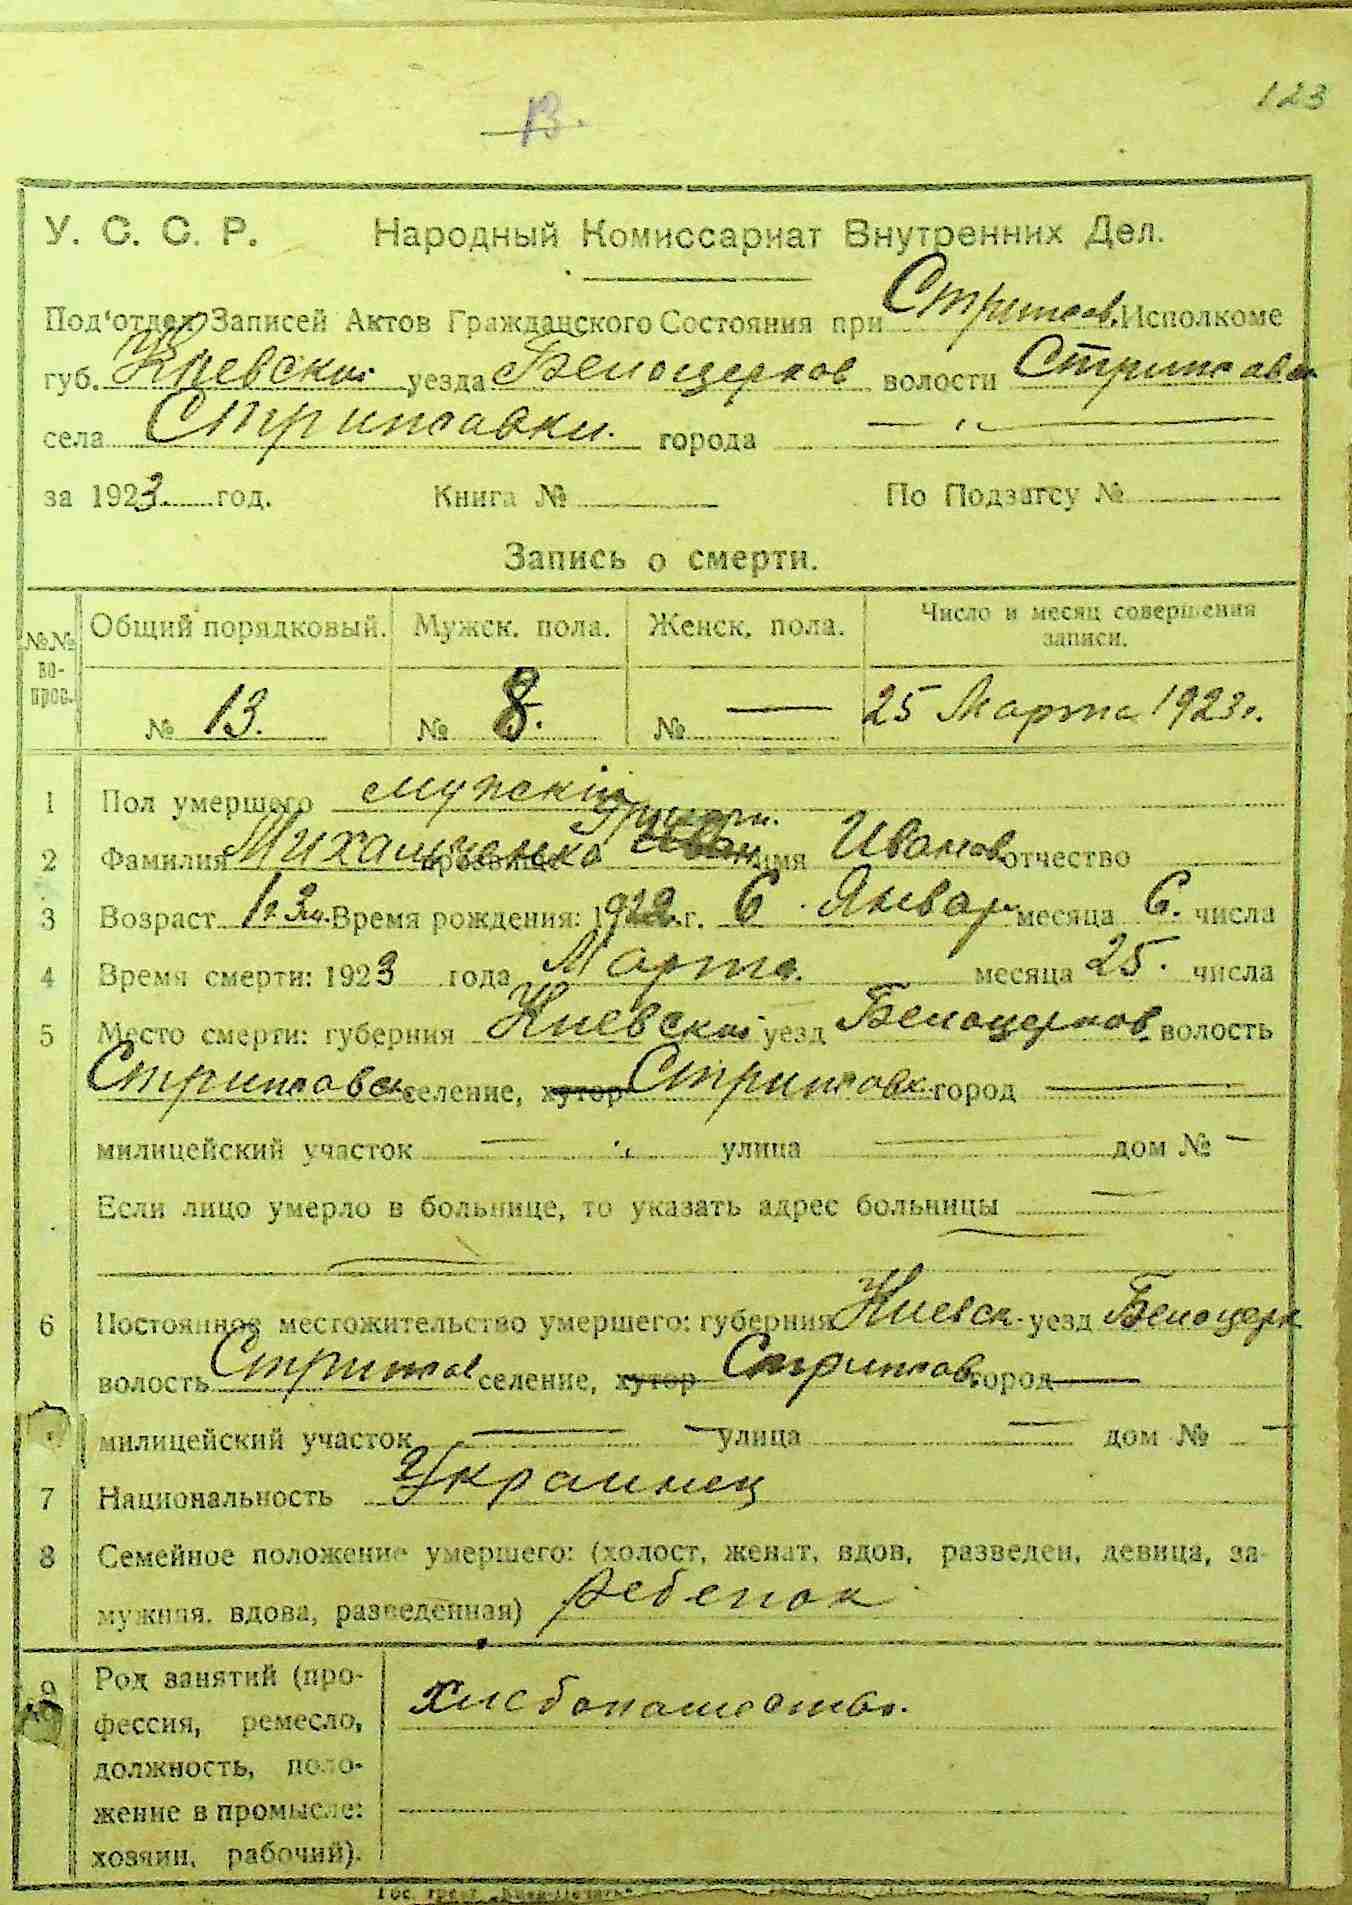 123
13.
У. С. С. Р. Народный Комиссариат Внутренних Дел.
Под‘отдел Записей Актов Гражданского Состояния при Стрижов. Исполкоме
губ. Киевской уезда Белоцерков волости Стрижавск
села Стрижавки. города — „ —
за 1923. год. Книга № По Подзагсу №
Запись о смерти.
№№ во-прос. Общий порядковый. Мужск. пола. Женск. пола. Число и месяц совершения записи.
№ 13. № 8. № — 25 Марта 1923г.
1 Пол умершего мужскій
2 Фамилия Михальченко прозвище имя Иванов отчество
3 Возраст 1г. 3м. Время рождения: 1922 г. 6 Январ месяца 6. числа
4 Время смерти: 1923 года Марта. месяца 25. числа
5 Место смерти: губерния Киевской уезд Белоцерков волость
Стрижовск селение, хутор Стрижовк город —
милицейский участок — „ улица — дом № —
Если лицо умерло в больнице, то указать адрес больницы —
—
6 Постоянное местожительство умершего: губерния Киевск. уезд Белоцерк
волость Стрижов селение, хутор Стрижов. город —
милицейский участок — улица — дом № —
7 Национальность Украинец
8 Семейное положение умершего: (холост, женат, вдов, разведен, девица, за-
мужняя, вдова, разведенная) ребенок
9 Род занятий (про- хлебопашество.
фессия, ремесло,
должность, поло-
жение в промысле:
хозяин, рабочий).